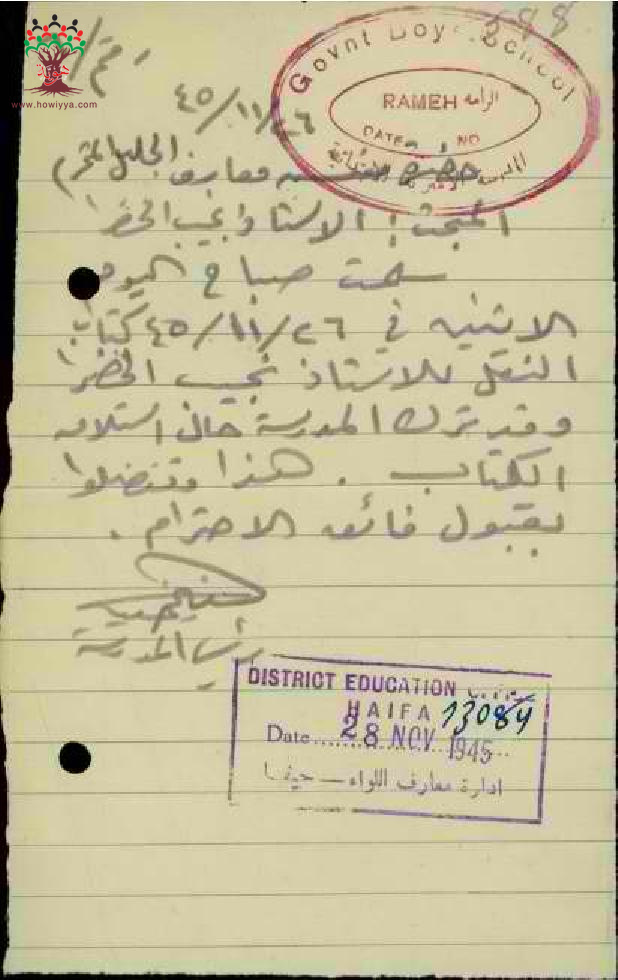 688
www.howiyya.com
Govnt Boys School
RAMEH الرامه
DATE NO
٤٥/١١/٢٦
حضرة معارف الجليل المحترم
المبحث: الاستاذ نجيب الخضرا
سلمت صباح اليوم
الاثنين في ٤٥/١١/٢٦ كتاب
النقل للاستاذ نجيب الخضرا
وقد ترك المدرسة حال استلامه
الكتاب . هذا وتفضلوا
بقبول فائق الاحترام .
رئيس المدرسة
DISTRICT EDUCATION
HAIFA 13084
Date 28 NOV 1945
ادارة معارف اللواء — حيفا